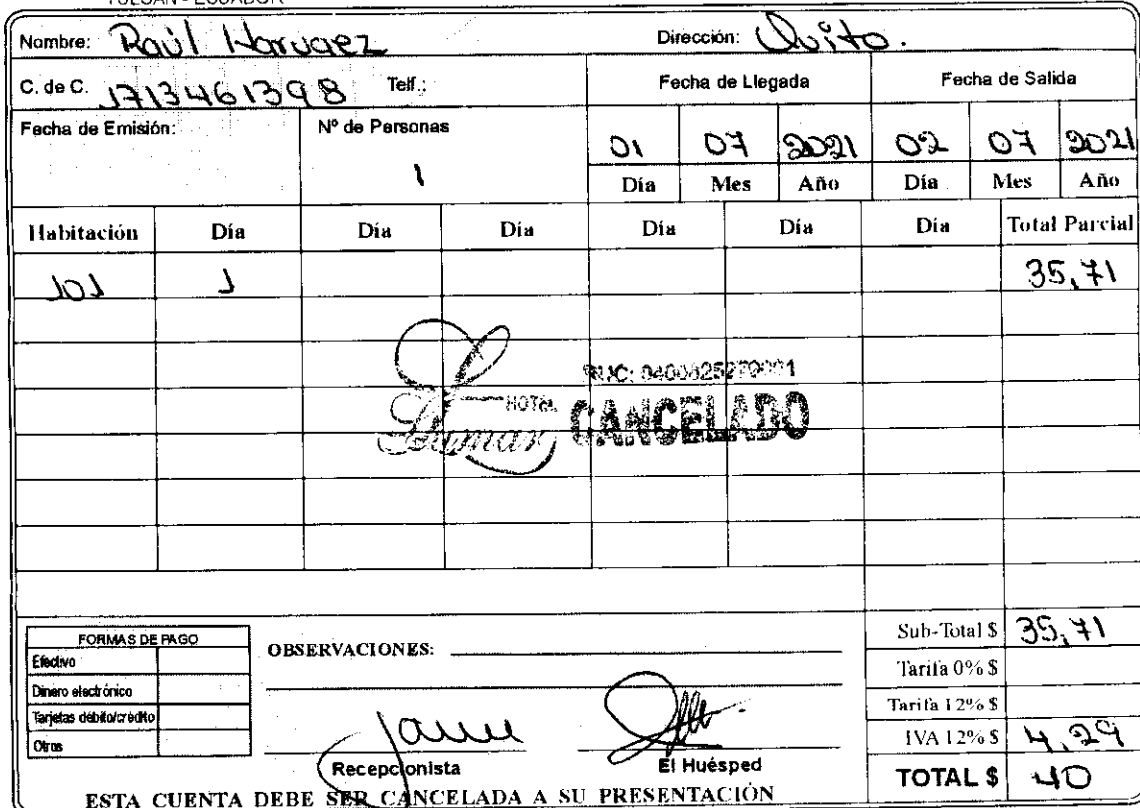 TULCAN - ECUADOR
Nombre: Raúl Narvaez Dirección: Quito.
C. de C. 1713461398 Telf.: Fecha de Llegada Fecha de Salida
Fecha de Emisión: Nº de Personas
1
01 07 2021 02 07 2021
Día Mes Año Día Mes Año
Habitación Día Día Día Día Día Día Total Parcial
101 1 35,71
HOTEL
RUC:
CANCELADO
FORMAS DE PAGO
Efectivo
Dinero electrónico
Tarjetas débito/crédito
Otros
OBSERVACIONES:
Sub-Total $ 35,71
Tarifa 0% $
Tarifa 12% $
IVA 12% $ 4,29
TOTAL $ 40
Recepcionista El Huésped
ESTA CUENTA DEBE SER CANCELADA A SU PRESENTACIÓN